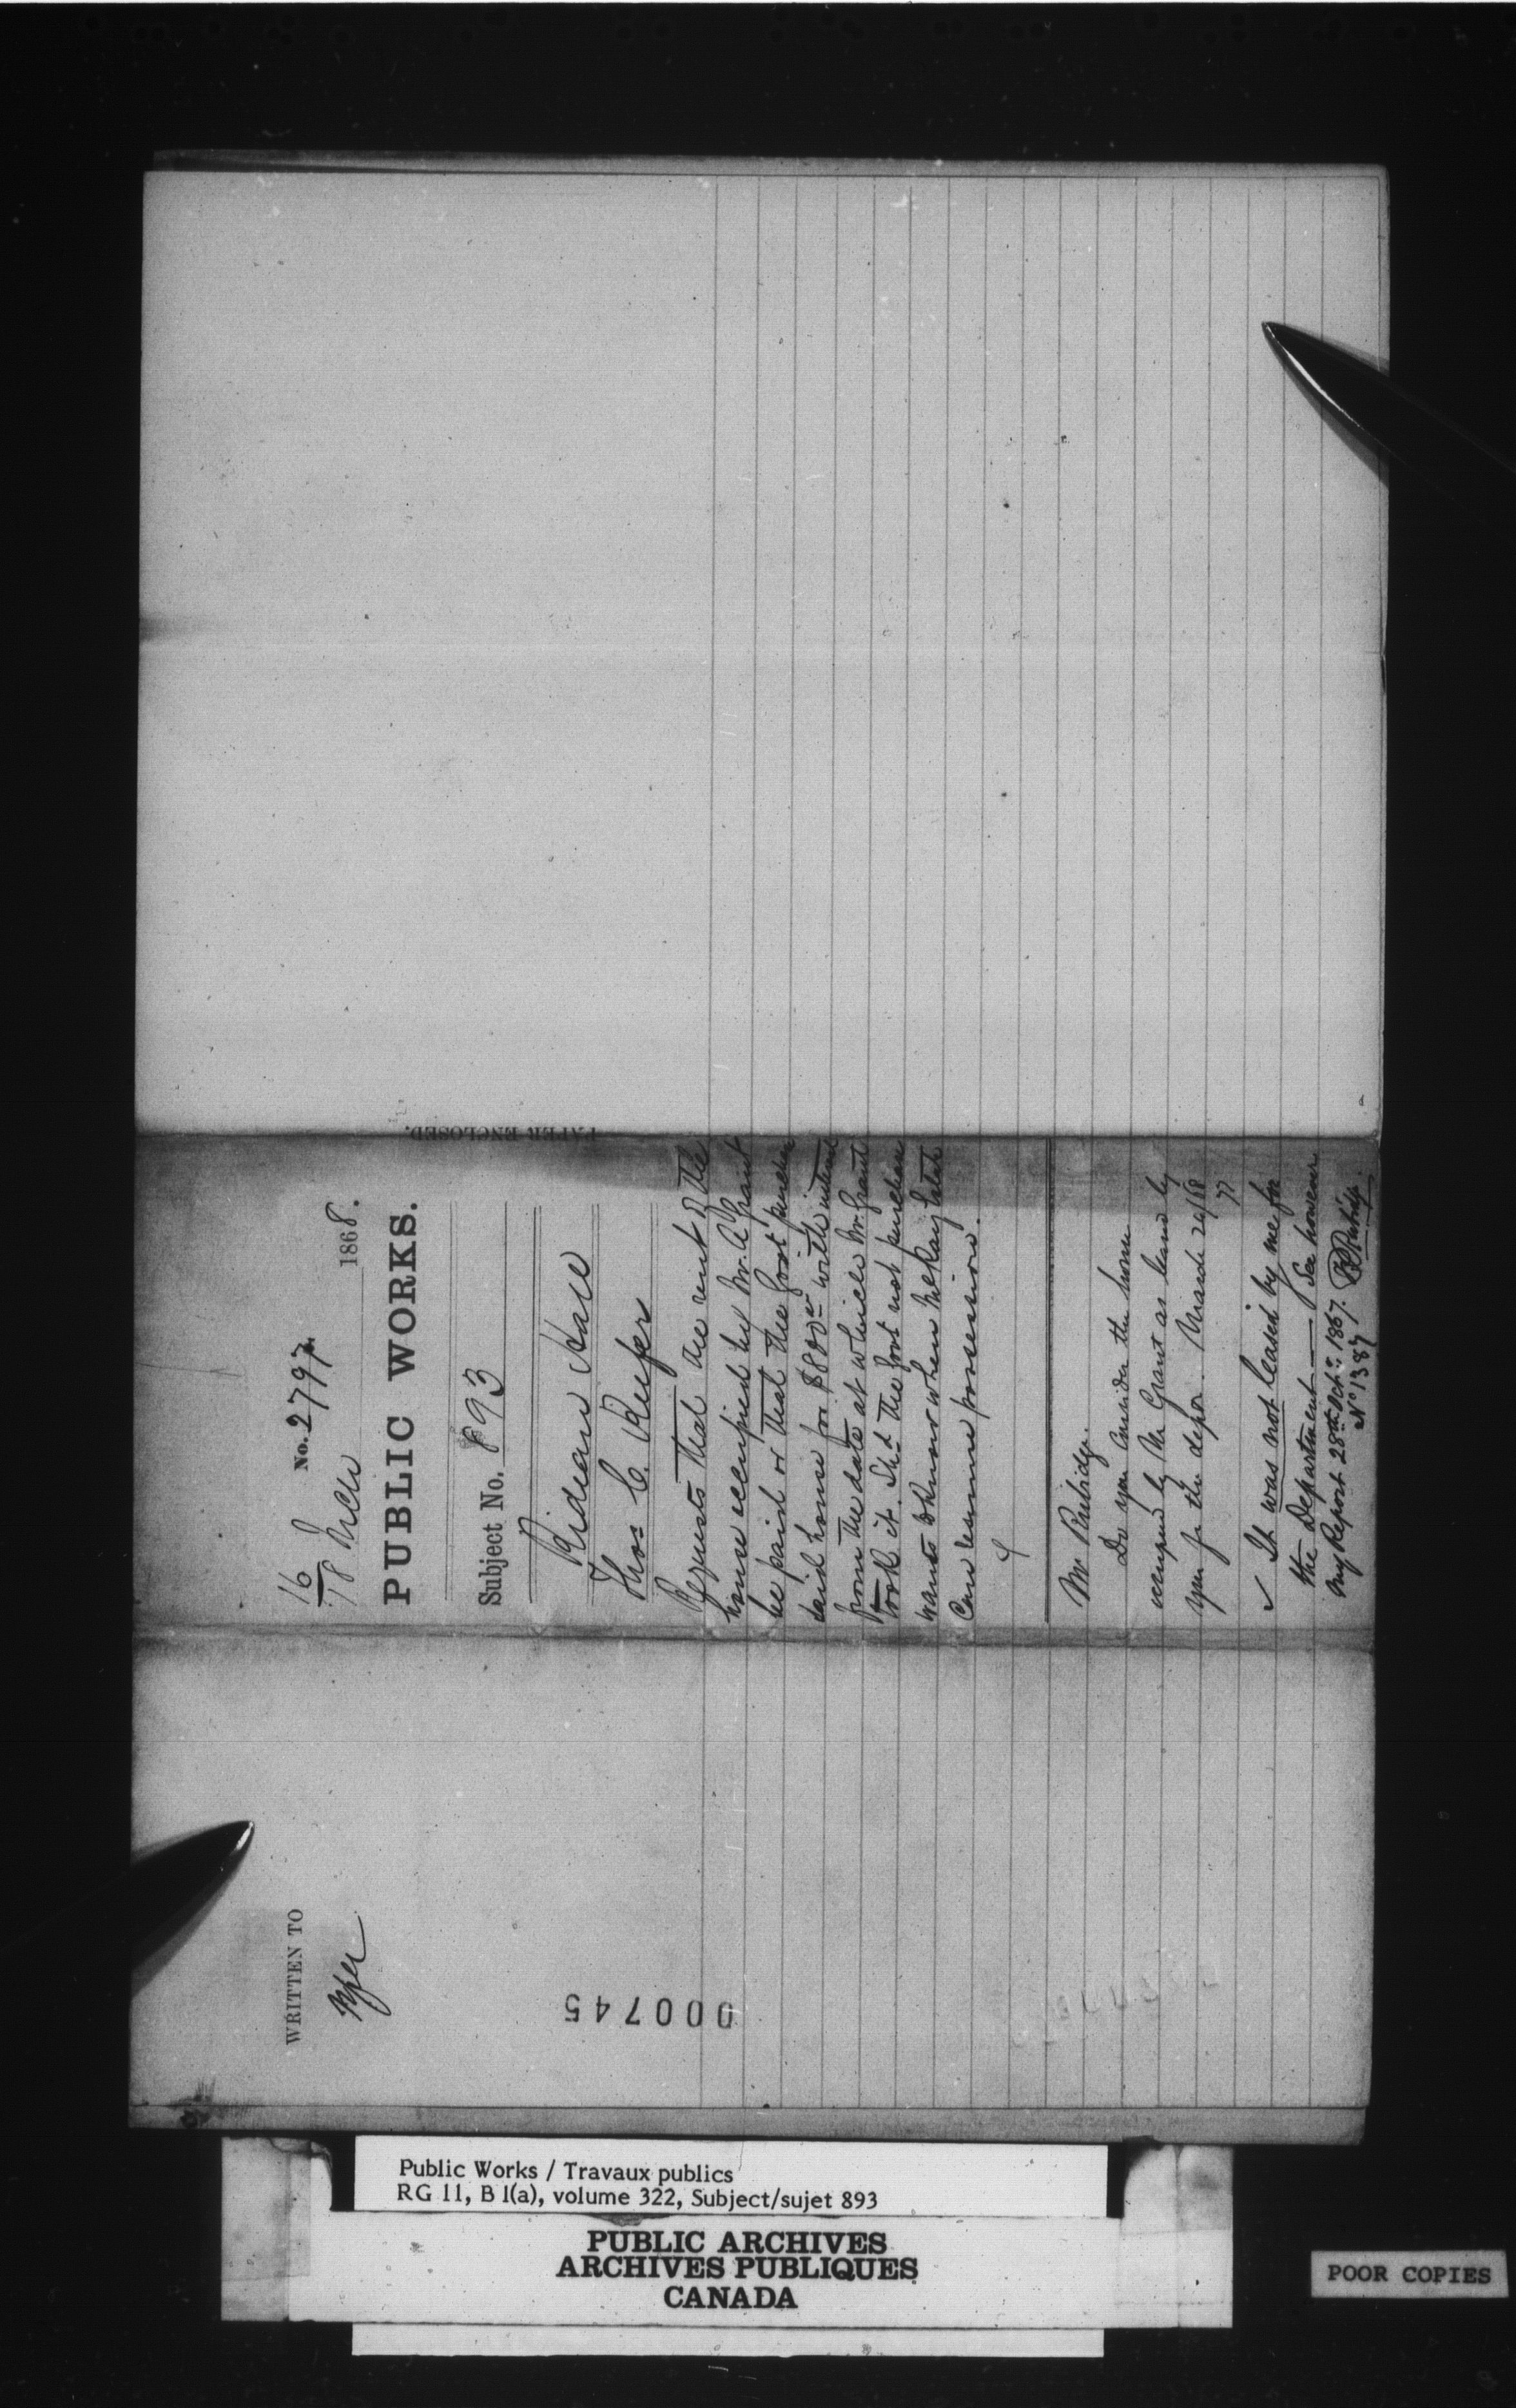 16/18 Mch
No. 2797
1868.
PUBLIC WORKS.
Subject No. 893
Rideau Hall
Thos C. Keefer
Requests that the rent of the
house occupied by Mr. A Grant
be paid or that the Govt purchase
said house for $800 00 with interest
from the date at which Mr. Grant
took it. Shd the Govt not purchase
wants to know when McKay Estate
can resume possession.
Mr Rubidge.
Do you consider the house
occupied by Mr Grant as leased by
you for the depr. March 20/68
✓ It was not leased by me for
the Department — See however
my Report 28th Octr. 1867. FPRubidge
No 1387
PAPER ENCLOSED.
WRITTEN TO
000745
Public Works / Travaux publics
RG 11, B 1(a), volume 322, Subject/sujet 893
PUBLIC ARCHIVES
ARCHIVES PUBLIQUES
CANADA
POOR COPIES